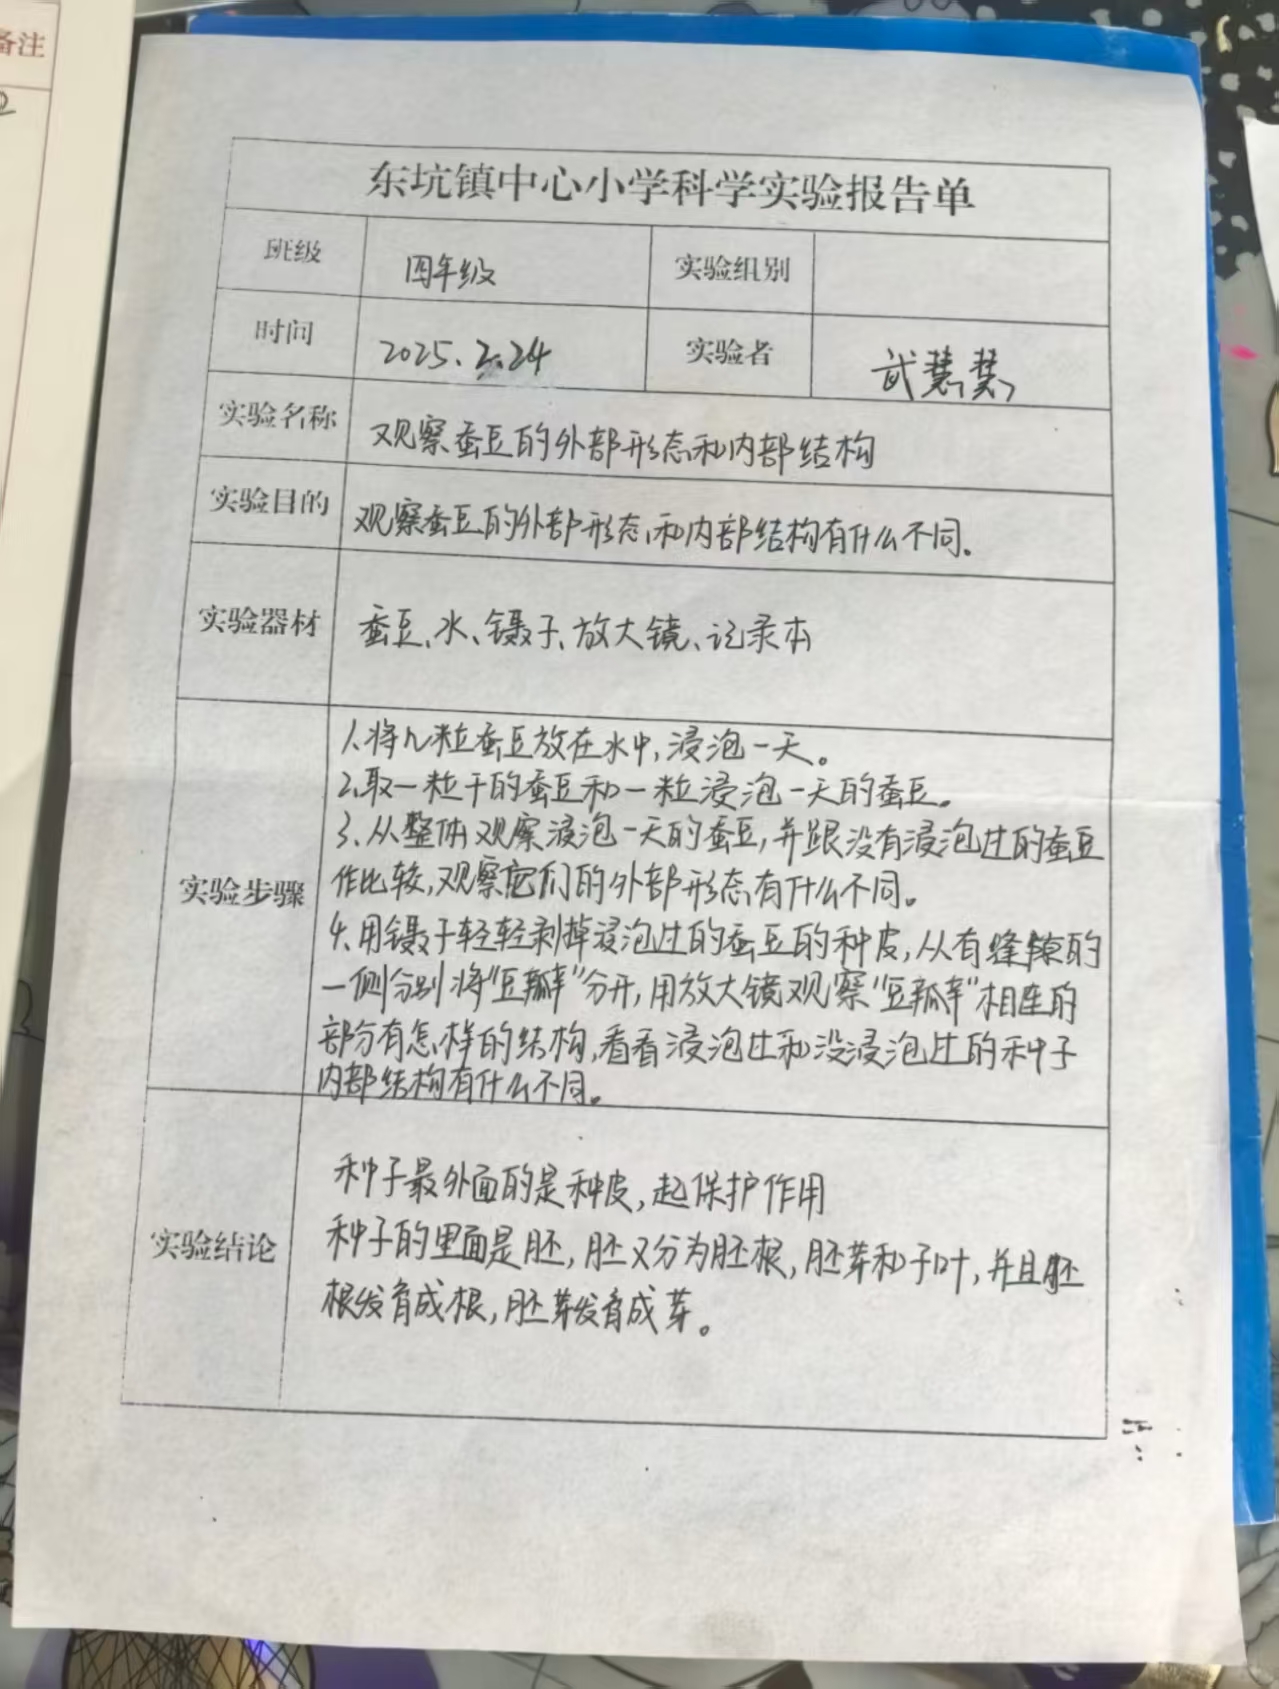 备注
东坑镇中心小学科学实验报告单
班级 四年级 实验组别
时间 2025.2.24 实验者 武慧慧
实验名称 观察蚕豆的外部形态和内部结构
实验目的 观察蚕豆的外部形态和内部结构有什么不同。
实验器材 蚕豆、水、镊子、放大镜、记录本
实验步骤
1.将几粒蚕豆放在水中,浸泡一天。
2.取一粒干的蚕豆和一粒浸泡一天的蚕豆。
3.从整体观察浸泡一天的蚕豆,并跟没有浸泡过的蚕豆
作比较,观察它们的外部形态有什么不同。
4.用镊子轻轻剥掉浸泡过的蚕豆的种皮,从有缝隙的
一侧分别将“豆瓣”分开,用放大镜观察“豆瓣”相连的
部分有怎样的结构,看看浸泡过和没浸泡过的种子
内部结构有什么不同。
实验结论
种子最外面的是种皮,起保护作用
种子的里面是胚,胚又分为胚根,胚芽和子叶,并且胚
根发育成根,胚芽发育成芽。